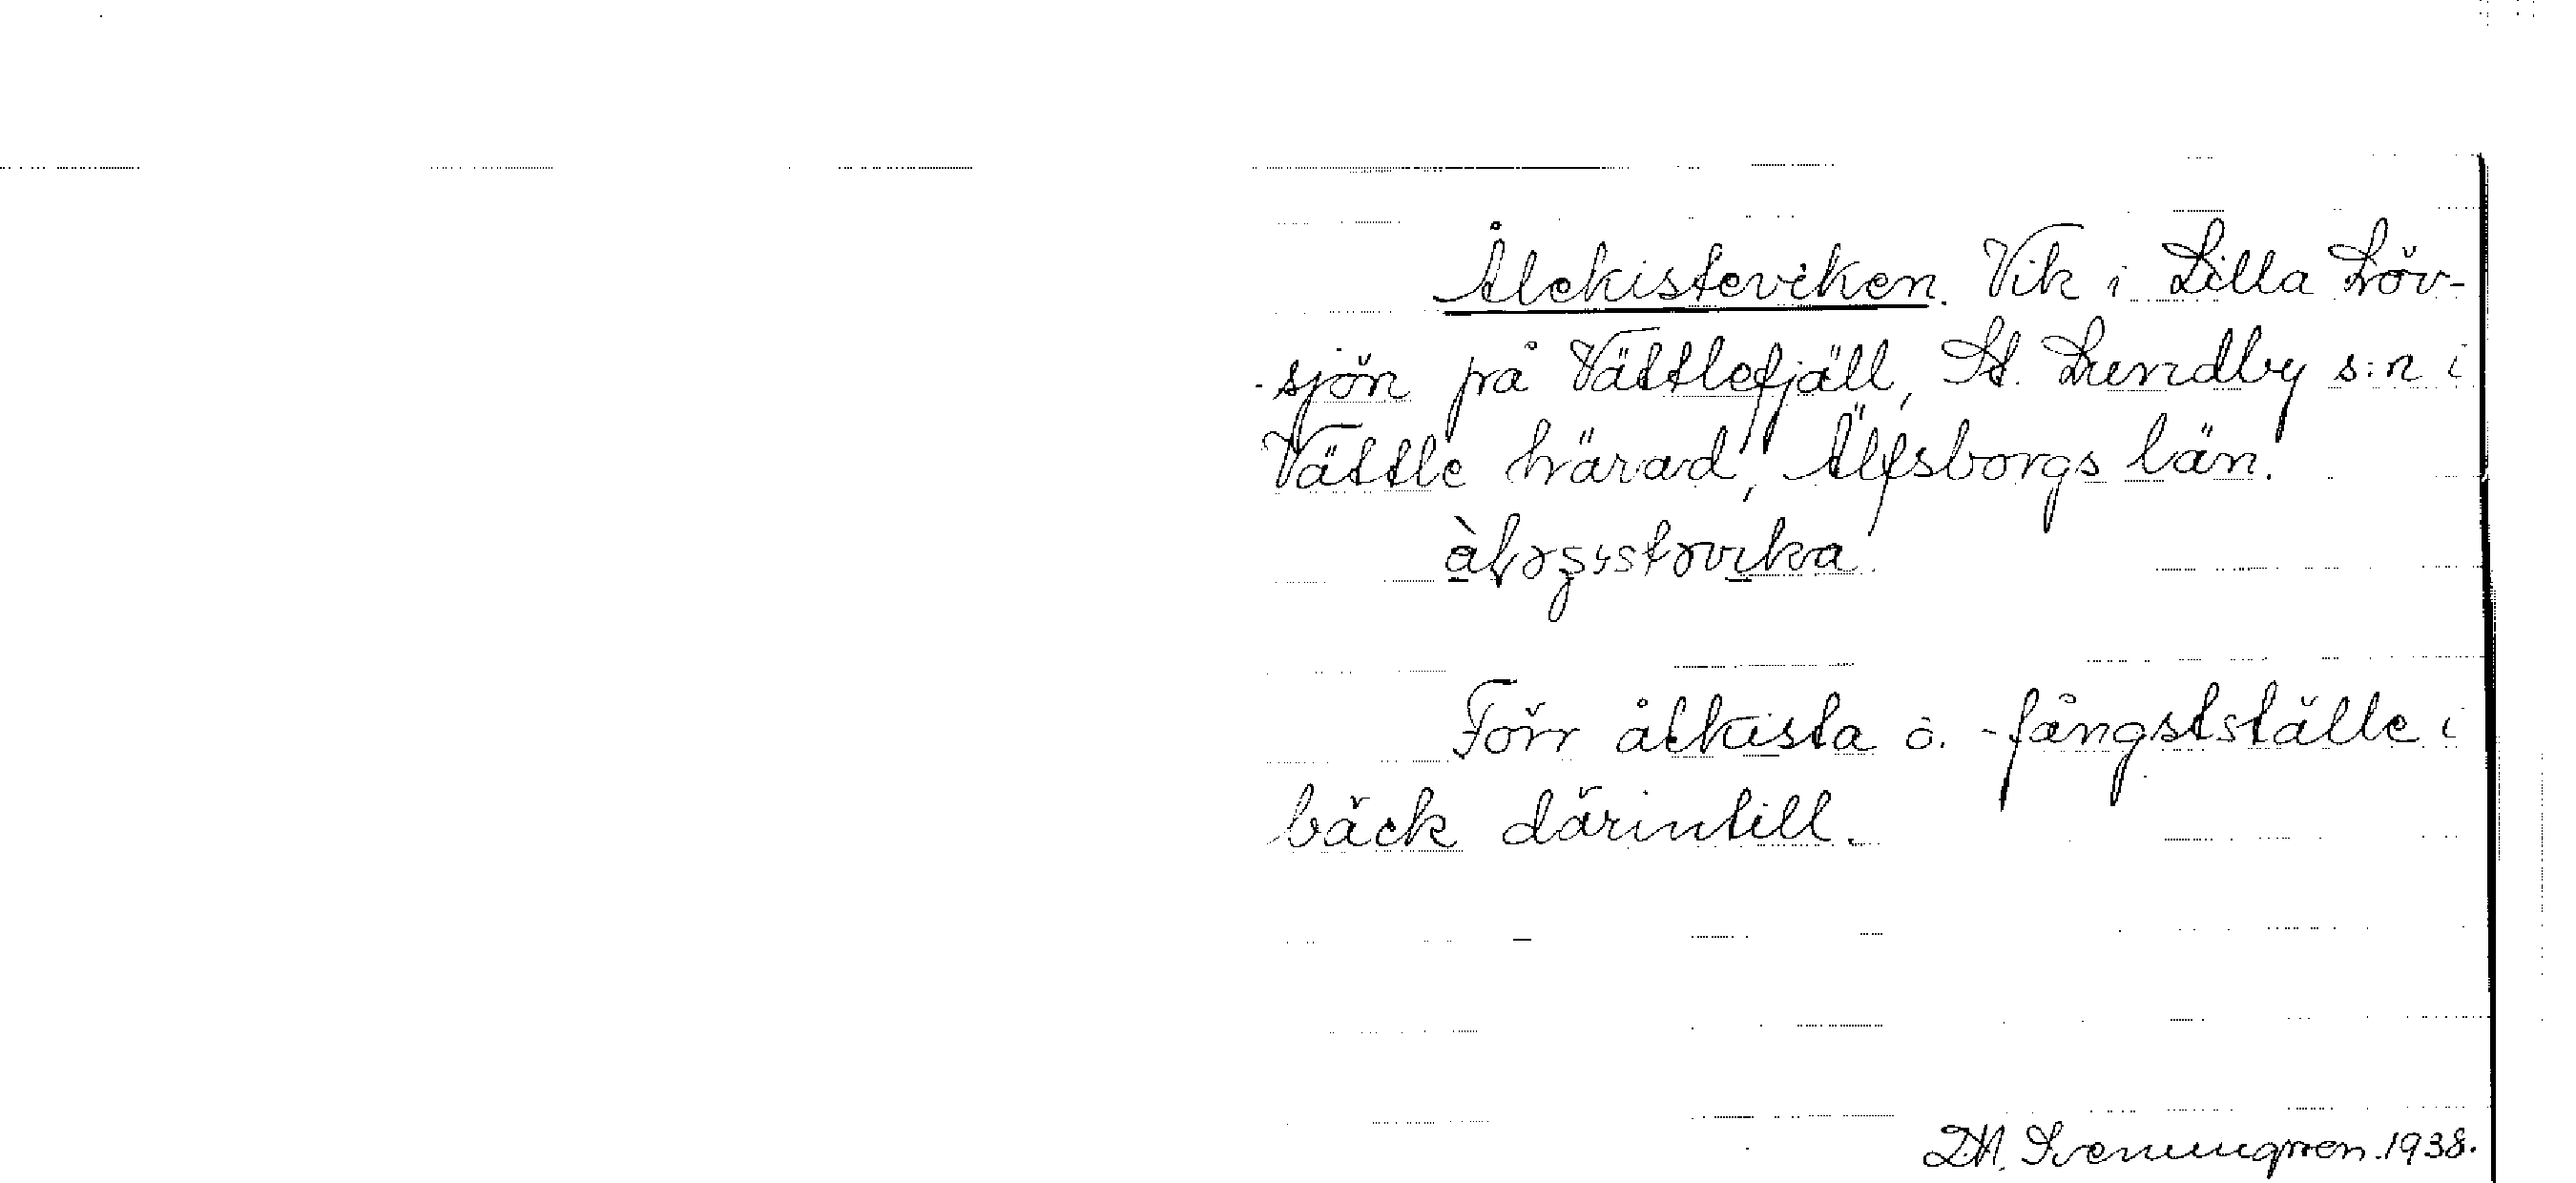 Ålekisteviken. Vik i Lilla Löv-
sjön på Vättlefjäll, St. Lundby s:n i
Vättle härad, Älfsborgs län.
Förr ålkista o. -fångstställe i
bäck därintill.
1938.